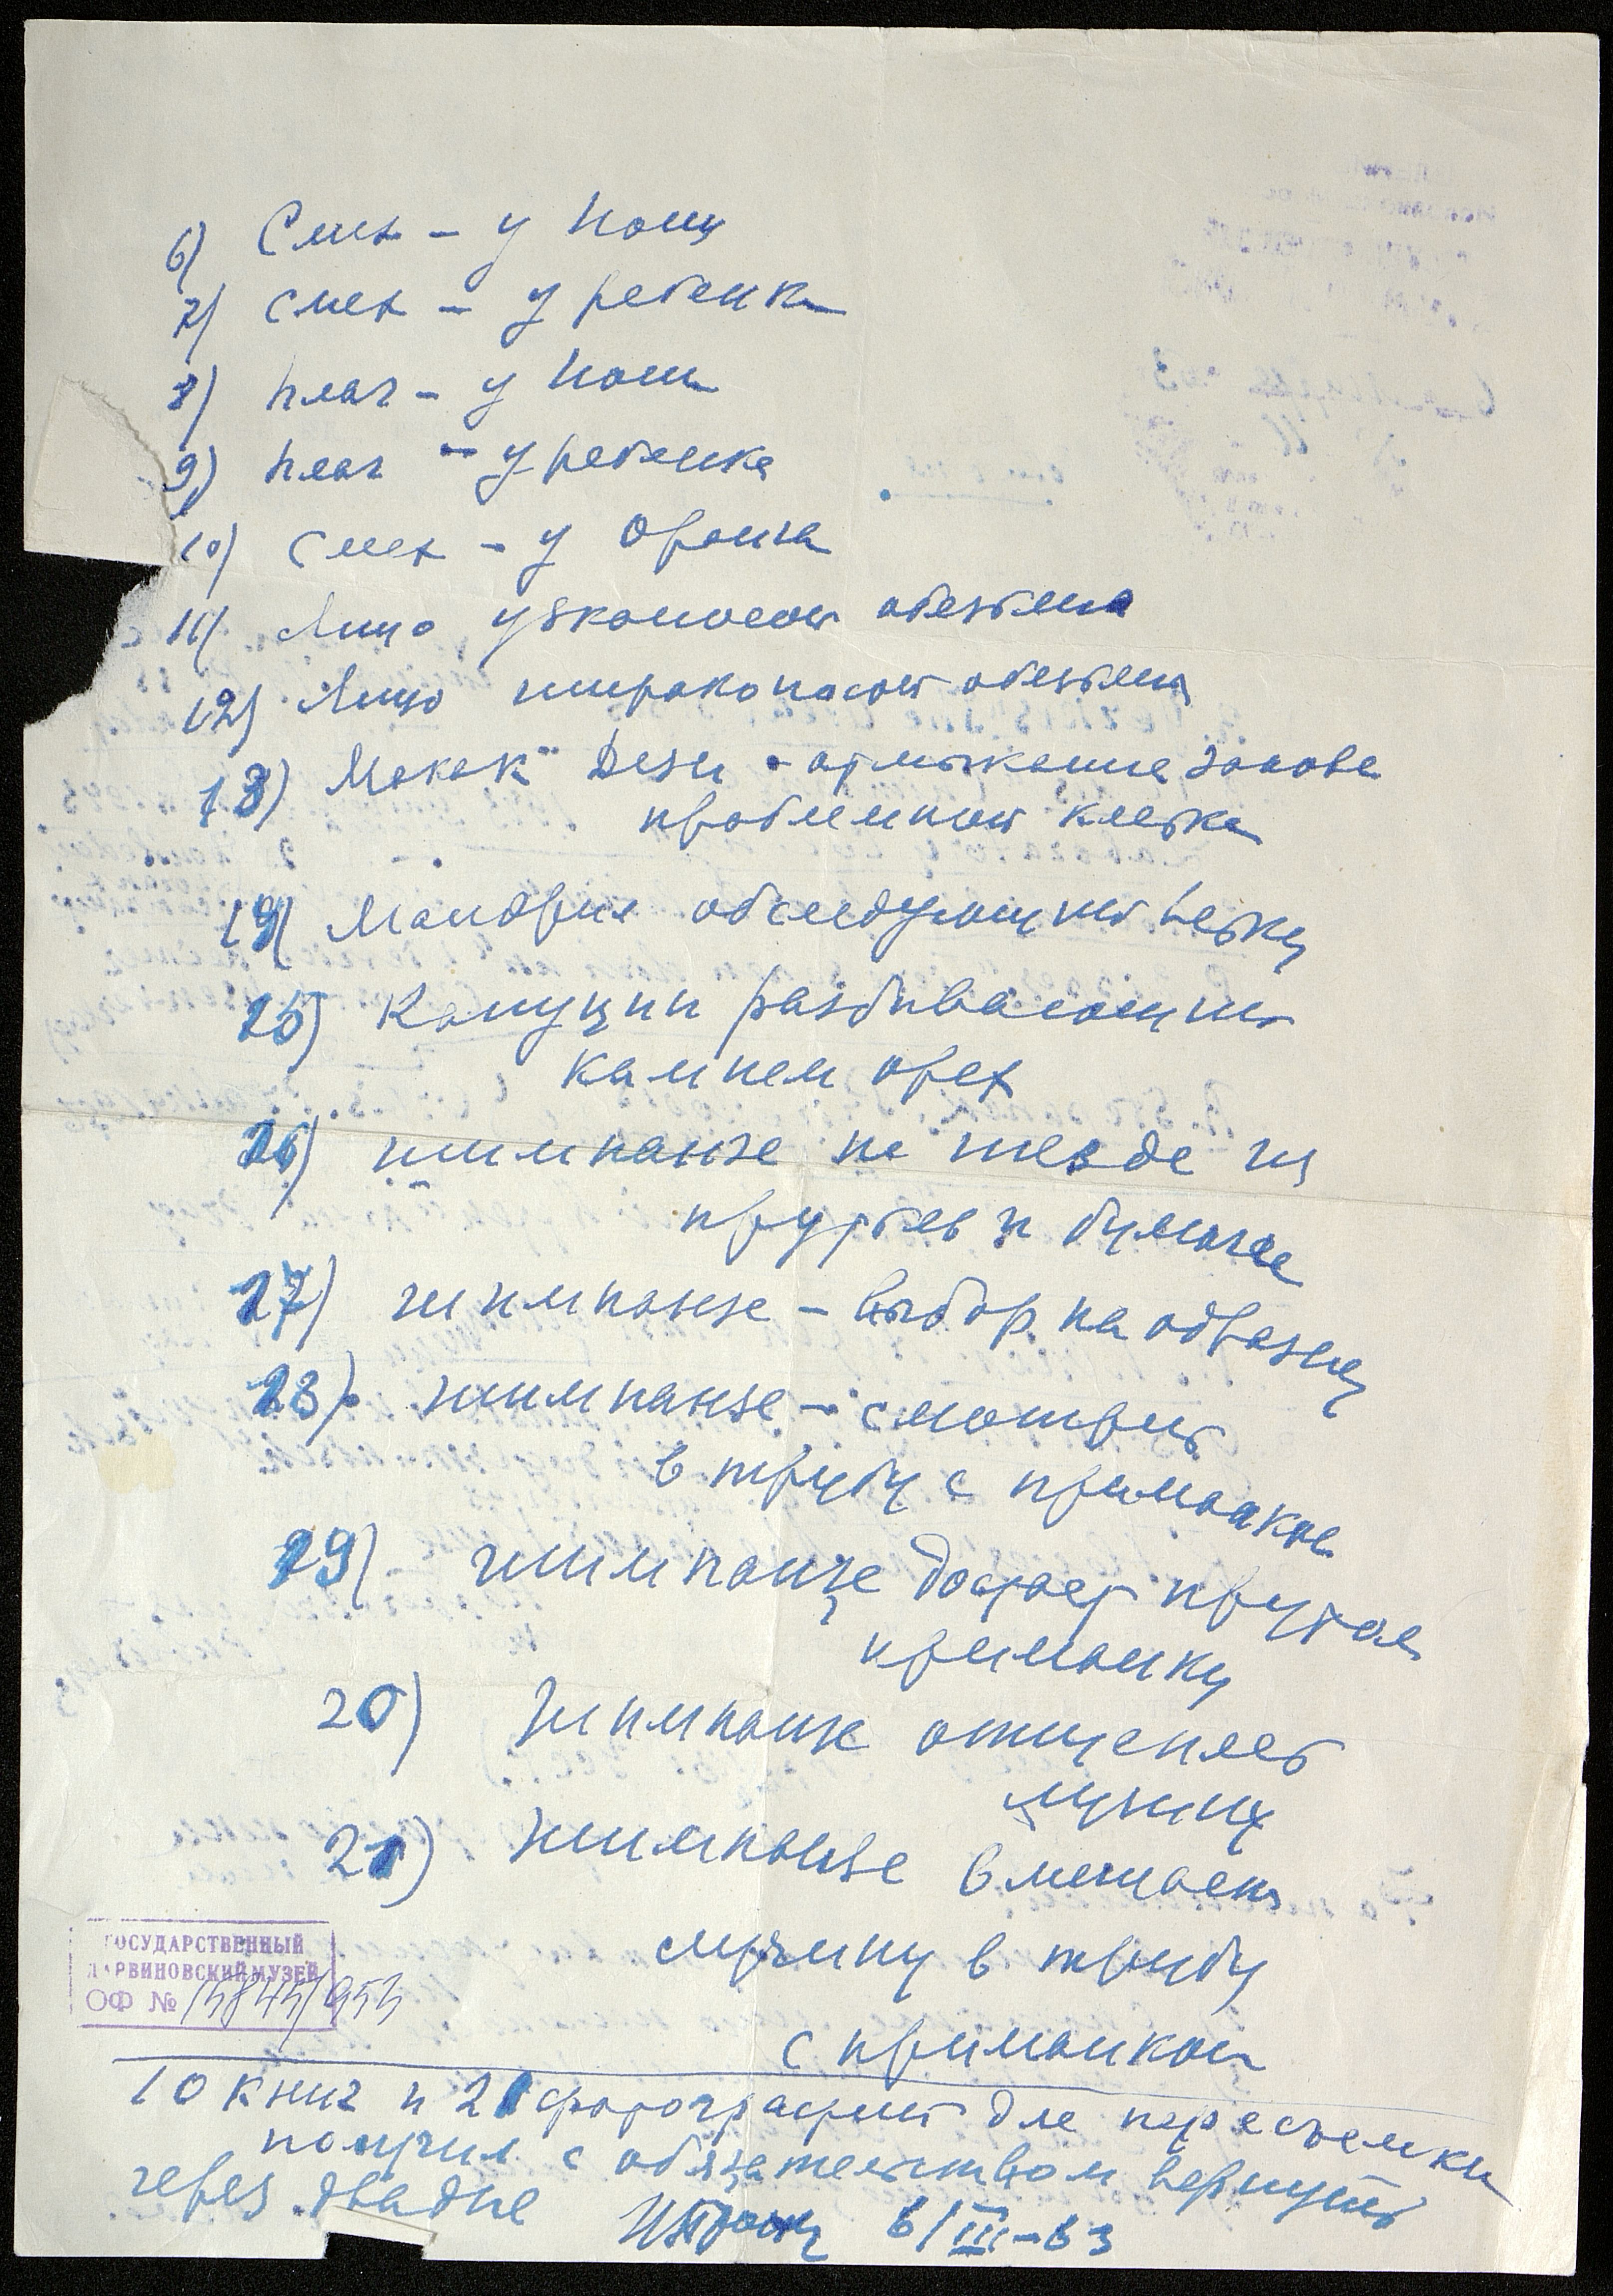 6) Смех – у Иони
7) Смех – у ребенка
8) плач – у Иони
9) плач – у ребенка
10) Смех – у Оранга
11) Лицо узконосой обезьяны
12) Лицо широконосой обезьяны
13) Макак Дези – отмыкание запора
проблемной клетки
14) Мандрил обследующий ветку
15) Капуцин разбивающий
камнем орех
16) шимпанзе на гнезде из
прутьев и бумаги
17) шимпанзе – выбор на образец
18) шимпанзе – смотрит
в трубу с приманкой
19) шимпанзе достает прутом
приманку
20) Шимпанзе отщепляет
лучину
21) шимпанзе вмещает
лучину в трубу
с приманкой
ГОСУДАРСТВЕННЫЙ
ДАРВИНОВСКИЙ МУЗЕЙ
ОФ №
10 книг и 21 фотографий для пересъемки
получил с обязательством вернуть
через два дня 6/III–63